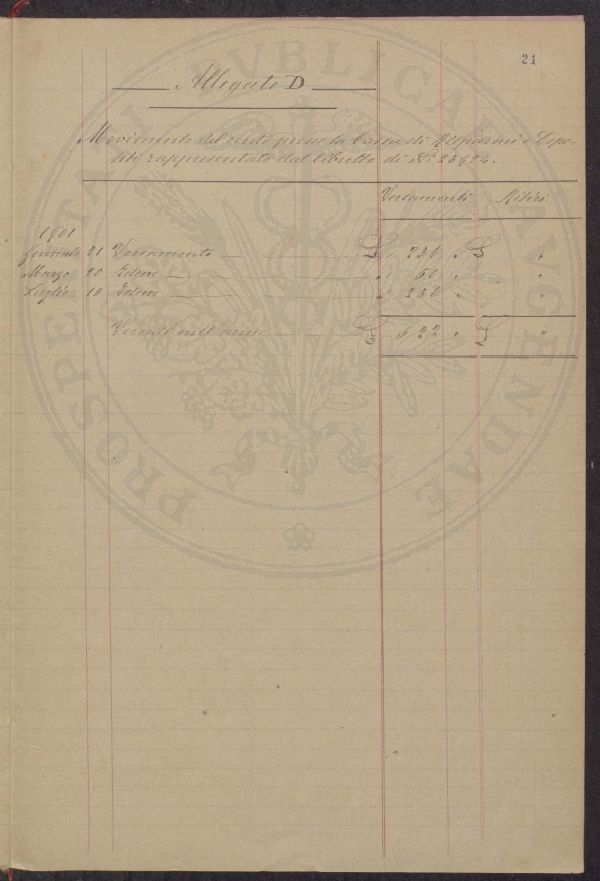 21
Allegato D
Movimento del conto presso la Cassa di Risparmi e Depo-
siti rappresentato dal libretto di N.
Versamenti Ritiri
1901
Gennaio 21 Versamento £ "
Marzo 20 Idem " "
Luglio Idem " "
£ 622 " £ "
PROSPERITATI PVBLICAE AVGENDAE